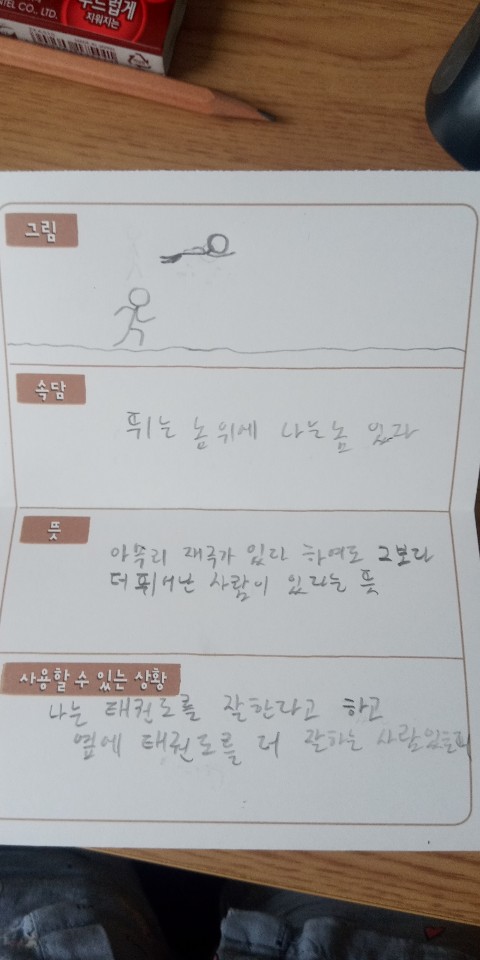 NTEL CO., LTD.
부드럽게
지워지는
그림
속담
뛰는 놈 위에 나는 놈 있다
뜻
아무리 재주가 있다 하여도 그보다
더 뛰어난 사람이 있다는 뜻
사용할 수 있는 상황
나는 태권도를 잘한다고 하고
옆에 태권도를 더 잘하는 사람있을때